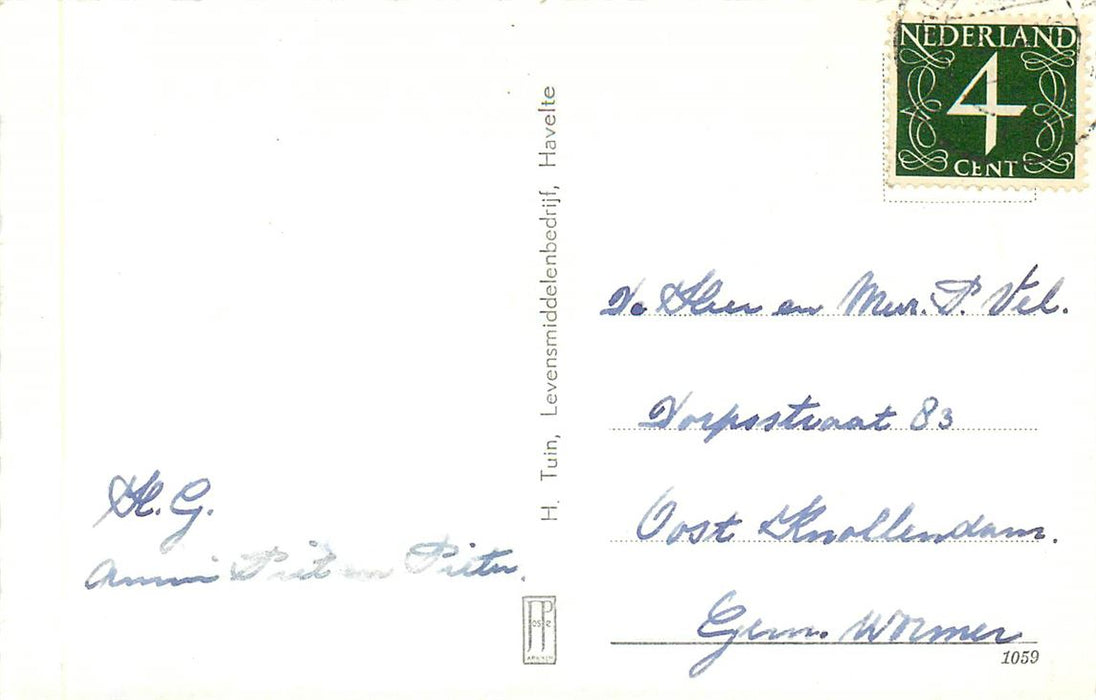 NEDERLAND
4
CENT
H. Tuin, Levensmiddelenbedrijf, Havelte
De Heer en Mevr. P. Vel.
Dorpsstraat 83
Oost Knollendam.
Gem. Wormer
H. G.
Annie Piet en Pieter.
JP
1059